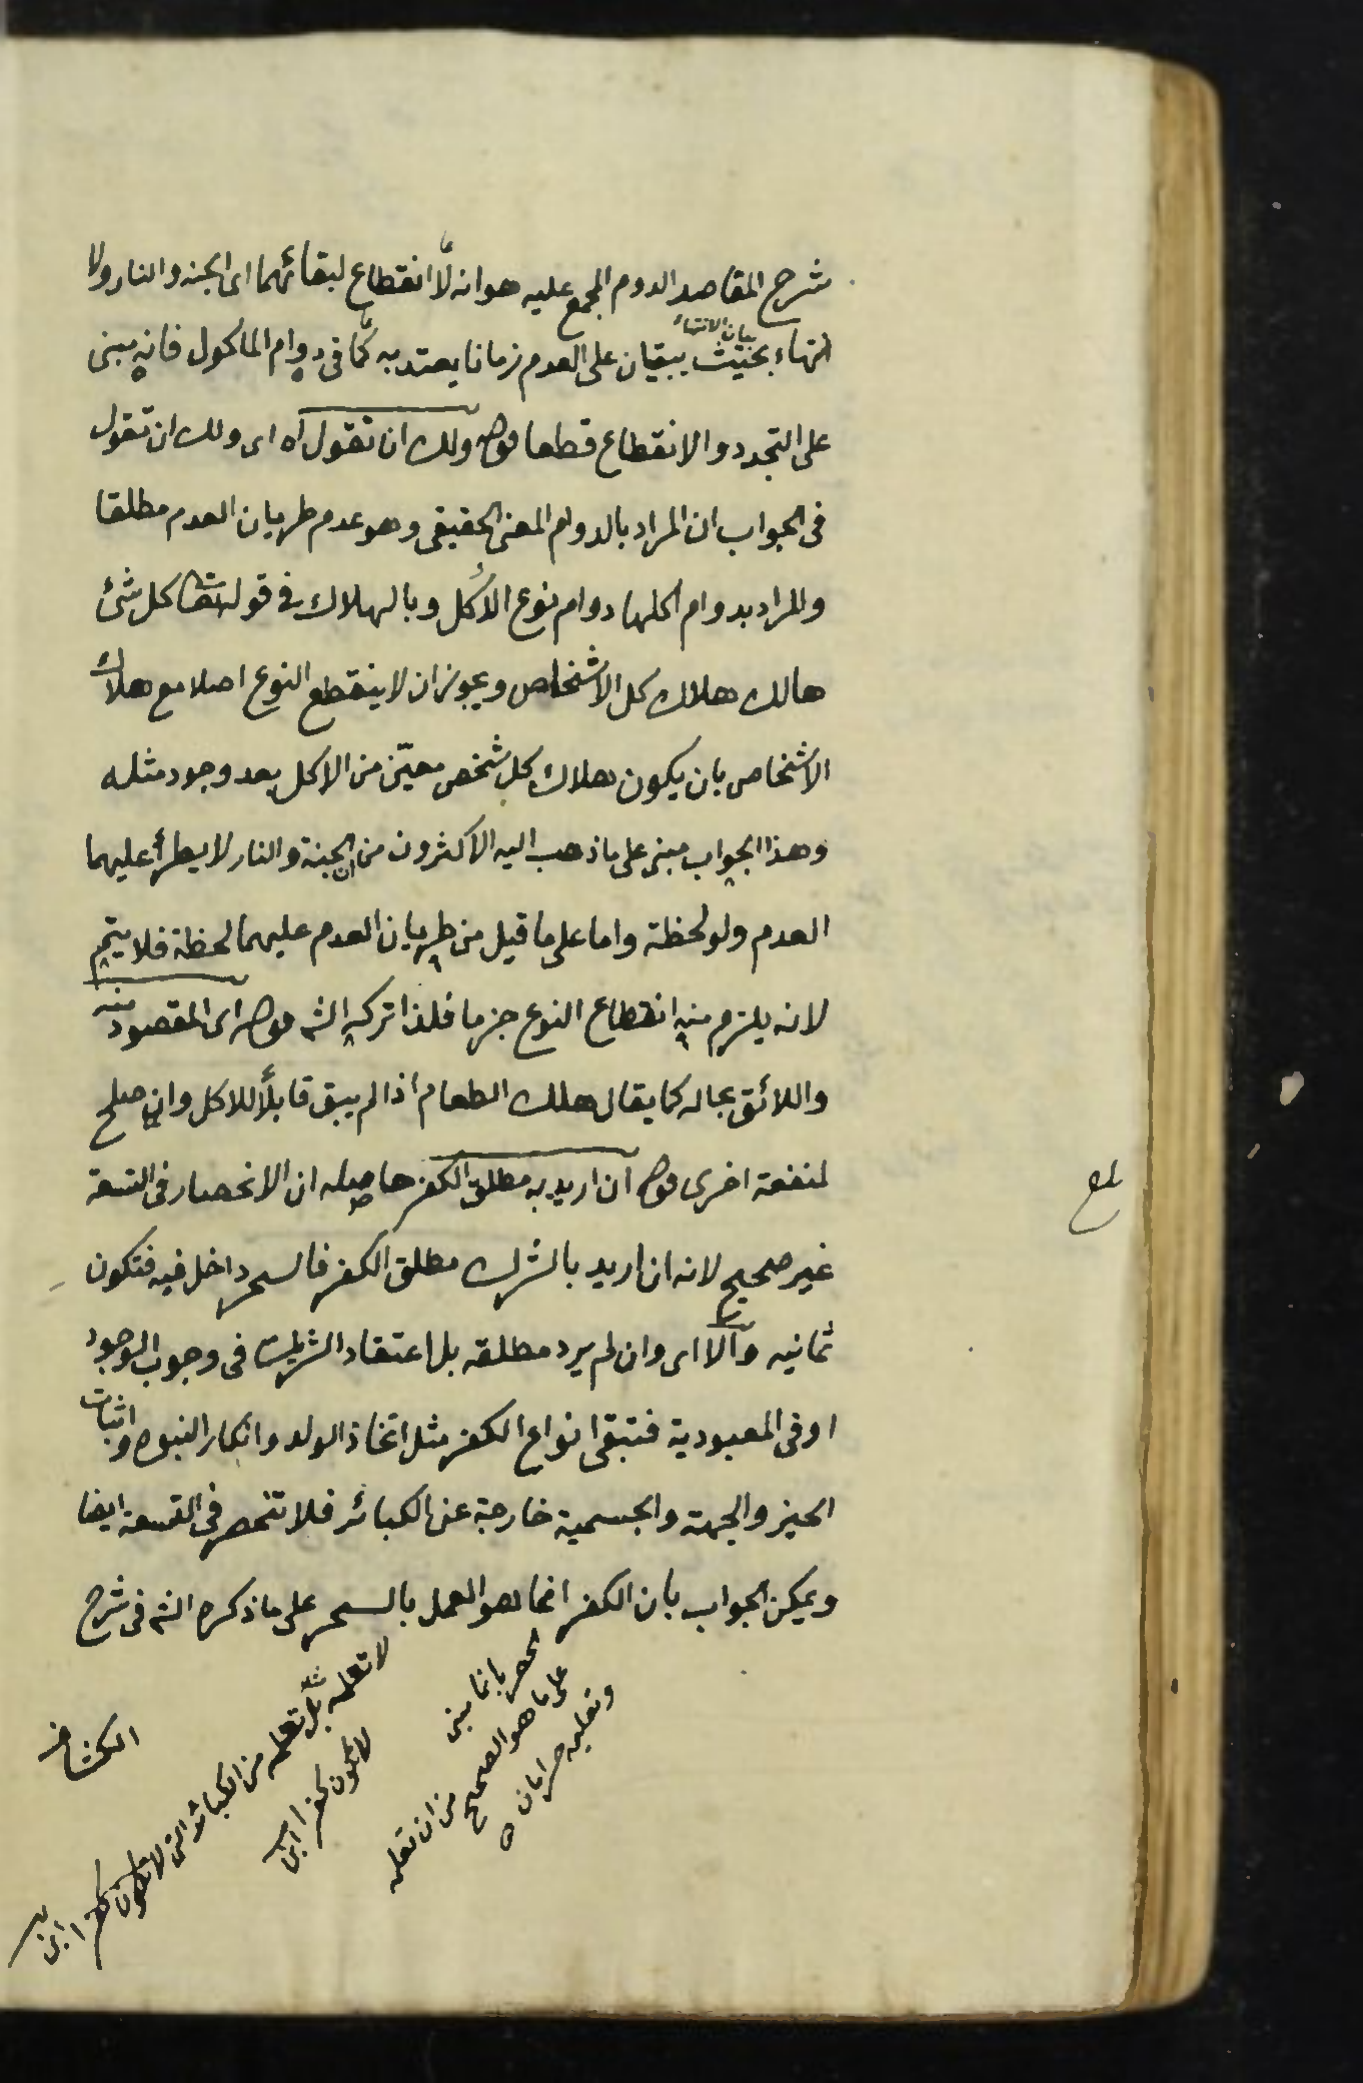 شرح المقاصد الدوم المجمع عليه هو انه لا انقطاع لبقائهما اى الجنه والنار ولا
بيان الانتهاء
انتهاء بحيث يبقيان على العدم زمانا يعتد به كما فى دوام المأكول فانه مبنى
على التجدد والانقطاع قطعا قوله ولك ان تقول اه اى ولك ان تقول
فى الجواب ان المراد بالدوام المعنى الحقيقى وهو عدم طريان العدم مطلقا
والمراد بدوام اكلها دوام نوع الاكل وبالهلاك فى قوله تعا كل شئ
هالك هلاك كل الاشخاص ويجوز ان لا ينقطع النوع اصلا مع هلاك
الاشخاص بان يكون هلاك كل شخص معيّن من الاكل بعد وجود مثله
وهذا الجواب مبنى على ما ذهب اليه الاكثرون من ان الجنة والنار لا يطرأ عليهما
العدم ولو لحظة واما على ما قيل من طريان العدم عليهما لحظة فلا يتم
لانه يلزم منه انقطاع النوع جزما فلذا تركه الشه قوله اى المقصود منه
واللائق بحاله كما يقال هلك الطعام اذا لم يبق قابلاً للاكل وان صلح
لمنفعة اخرى قوله ان اريد به مطلق الكفر حاصله ان الانحصار فى التسعة
غير صحيح لانه ان اريد بالشرك مطلق الكفر فالسحر داخل فيه فتكون
ثمانيه والا اى وان لم يرد مطلقه بل اعتقاد الشريك فى وجوب الوجود
او فى المعبودية فتبقى انواع الكفر مثل اتخاذ الولد وانكار النبوه واثبات
الحيز والجهة والجسمية خارجة عن الكبائر فلا تنحصر فى التسعة ايضا
ويمكن الجواب بان الكفر انما هو العمل بالسحر على ما ذكره الشه فى شرح
الكشاف
لا تعلمه بل تعلمه من الكبائر التى لا تكون كفرا
لا تكون كفرا
الحصر بانما مبنى
على ما هو الصحيح من ان تعلمه
وتعليمه حرامان
بلغ